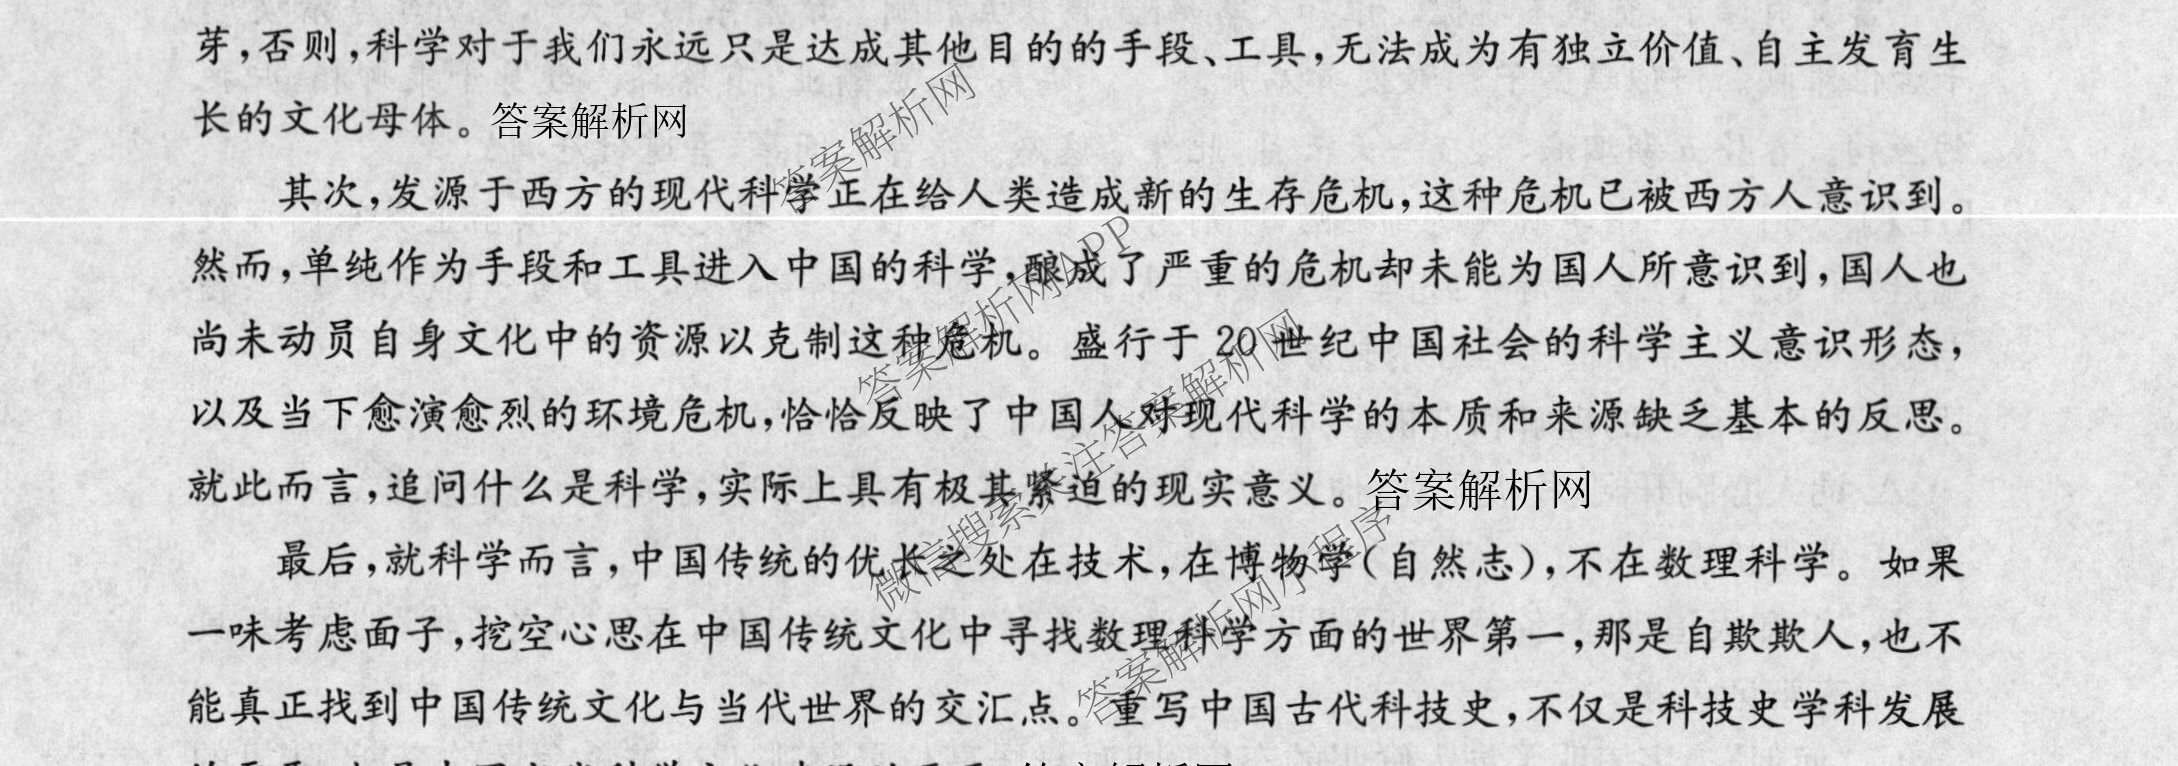 芽,否则,科学对于我们永远只是达成其他目的的手段、工具,无法成为有独立价值、自主发育生
长的文化母体。答案解析网
答案解析网
其次,发源于西方的现代科学正在给人类造成新的生存危机,这种危机已被西方人意识到。
然而,单纯作为手段和工具进入中国的科学,酿成了严重的危机却未能为国人所意识到,国人也
答案解析网APP
尚未动员自身文化中的资源以克制这种危机。盛行于20世纪中国社会的科学主义意识形态,
以及当下愈演愈烈的环境危机,恰恰反映了中国人对现代科学的本质和来源缺乏基本的反思。
微信搜索关注答案解析网
就此而言,追问什么是科学,实际上具有极其紧迫的现实意义。答案解析网
最后,就科学而言,中国传统的优长之处在技术,在博物学(自然志),不在数理科学。如果
答案解析网小程序
一味考虑面子,挖空心思在中国传统文化中寻找数理科学方面的世界第一,那是自欺欺人,也不
能真正找到中国传统文化与当代世界的交汇点。重写中国古代科技史,不仅是科技史学科发展